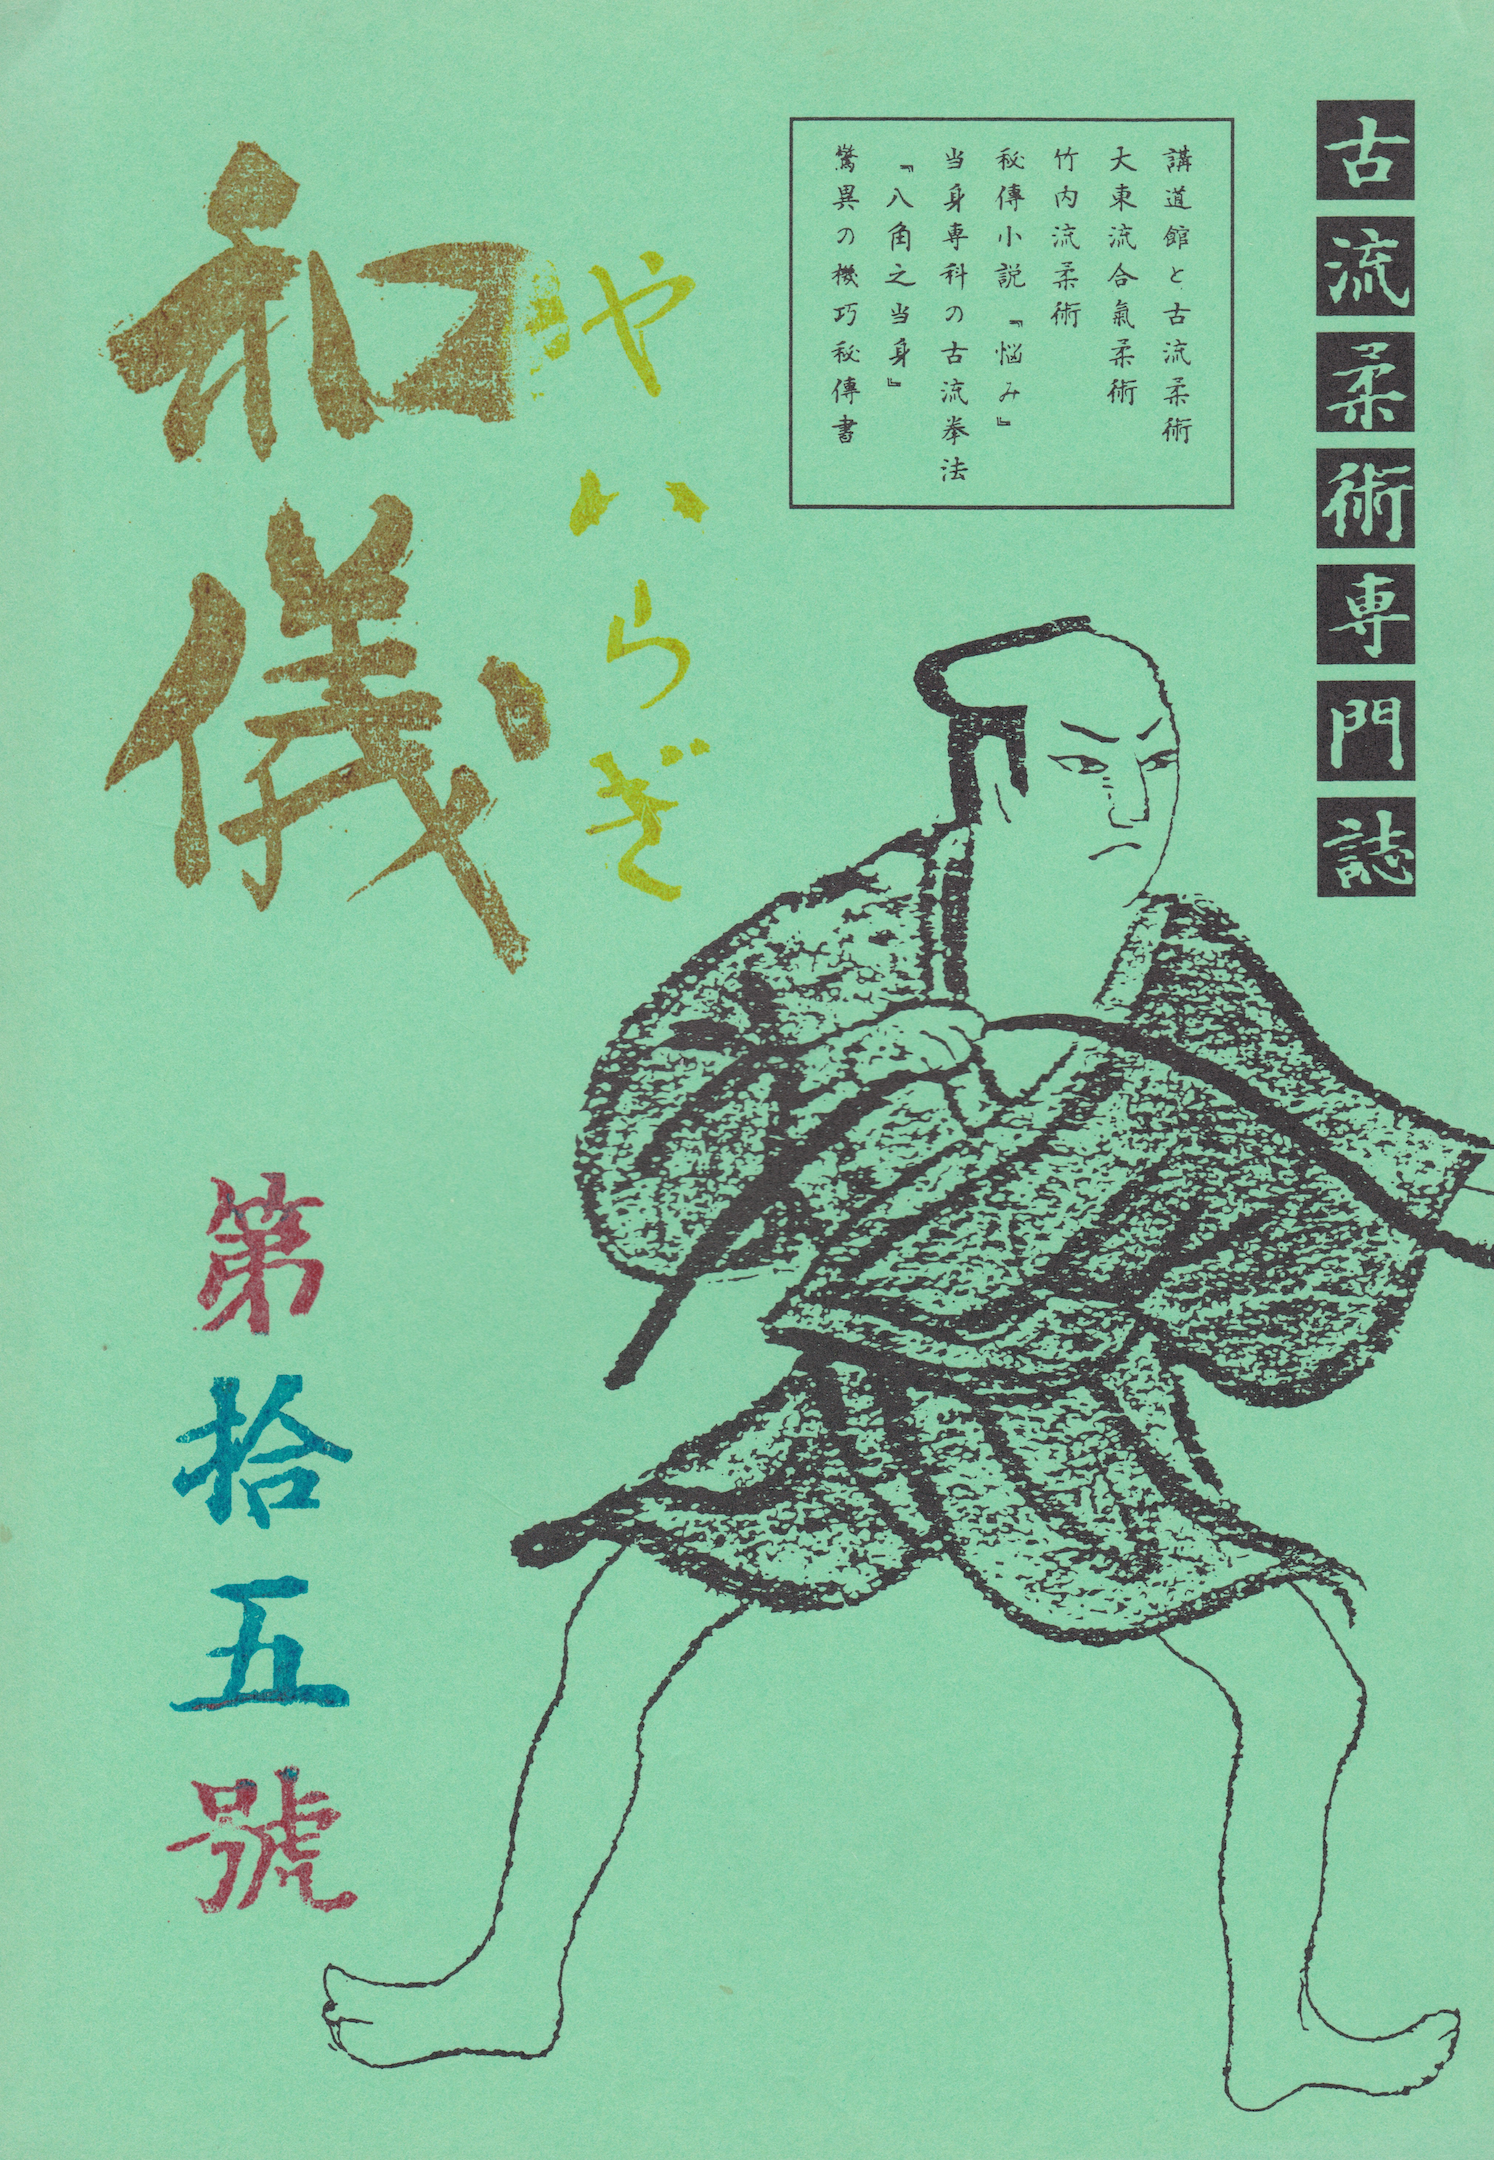 古流柔術専門誌
講道館と古流柔術
大東流合氣柔術
竹内流柔術
秘傳小説『悩み』
当身専科の古流拳法
『八角之当身』
驚異の機巧秘傳書
やハらぎ
和儀
第拾五號